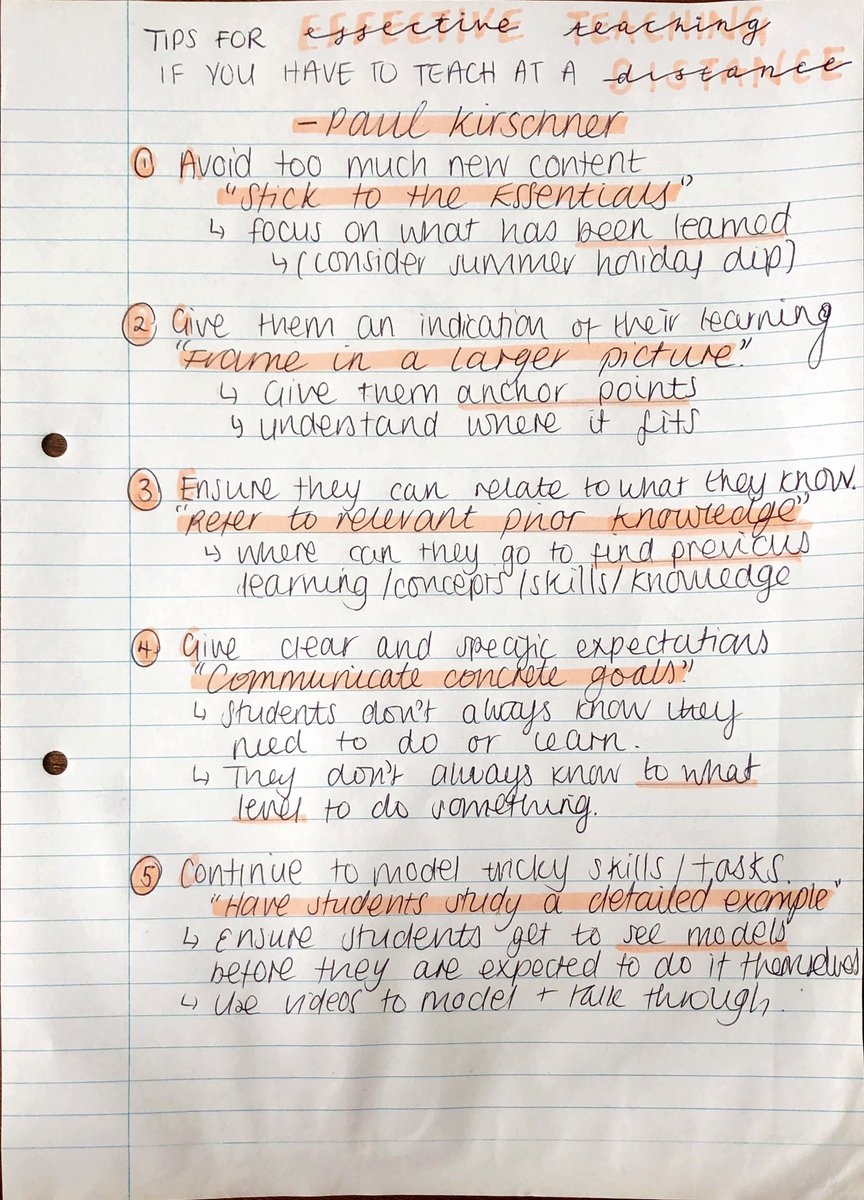 TIPS FOR effective teaching
IF YOU HAVE TO TEACH AT A distance
- Paul Kirschner
① Avoid too much new content
"Stick to the Essentials"
↳ focus on what has been learned
↳ (consider summer holiday dip)
② Give them an indication of their learning
"Frame in a larger picture."
↳ Give them anchor points
↳ understand where it fits
③ Ensure they can relate to what they know.
"Refer to relevant prior knowledge"
↳ where can they go to find previous
learning/concepts/skills/knowledge
④ Give clear and specific expectations
"Communicate concrete goals"
↳ Students don't always know they
need to do or learn.
↳ They don't always know to what
level to do something.
⑤ Continue to model tricky skills/tasks.
"Have students study a detailed example"
↳ Ensure students get to see models
before they are expected to do it themselves
↳ Use videos to model + talk through.